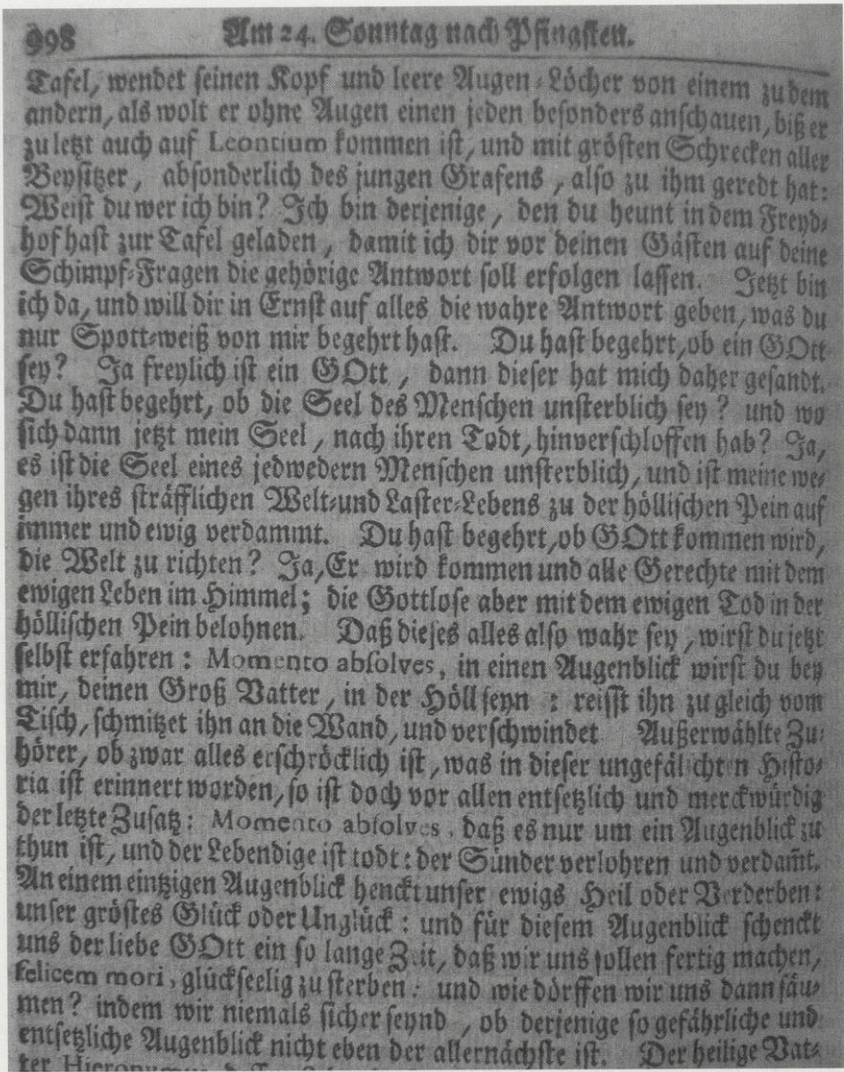 998 Am 24. Sonntag nach Pfingsten.
Tafel, wendet seinen Kopf und leere Augen-Löcher von einem zu dem
andern, als wolt er ohne Augen einen jeden besonders anschauen, biß er
zu letzt auch auf Leontium kommen ist, und mit grösten Schrecken aller
Beysitzer, absonderlich des jungen Grafens, also zu ihm geredt hat:
Weist du wer ich bin? Ich bin derjenige, den du heunt in dem Freyd-
hof hast zur Tafel geladen, damit ich dir vor deinen Gästen auf deine
Schimpf-Fragen die gehörige Antwort soll erfolgen lassen. Jetzt bin
ich da, und will dir in Ernst auf alles die wahre Antwort geben, was du
nur Spott-weiß von mir begehrt hast. Du hast begehrt, ob ein GOtt
sey? Ja freylich ist ein GOtt, dann dieser hat mich daher gesandt.
Du hast begehrt, ob die Seel des Menschen unsterblich sey? und wo
sich dann jetzt mein Seel, nach ihren Todt, hinverschloffen hab? Ja,
es ist die Seel eines jedwedern Menschen unsterblich, und ist meine we-
gen ihres sträfflichen Welt-und Laster-Lebens zu der höllischen Pein auf
immer und ewig verdammt. Du hast begehrt, ob GOtt kommen wird,
die Welt zu richten? Ja, Er wird kommen und alle Gerechte mit dem
ewigen Leben im Himmel; die Gottlose aber mit dem ewigen Tod in der
höllischen Pein belohnen. Daß dieses alles also wahr sey, wirst du jetzt
selbst erfahren: Momento absolves, in einen Augenblick wirst du bey
mir, deinen Groß Vatter, in der Höll seyn: reisst ihn zugleich vom
Tisch, schmitzet ihn an die Wand, und verschwindet Außerwählte Zu-
hörer, ob zwar alles erschröcklich ist, was in dieser ungefälschten Histo-
ria ist erinnert worden, so ist doch vor allen entsetzlich und merckwürdig
der letzte Zusatz: Momento absolves, daß es nur um ein Augenblick zu
thun ist, und der Lebendige ist todt: der Sünder verlohren und verdam̄t.
An einem eintzigen Augenblick henckt unser ewigs Heil oder Verderben:
unser gröstes Glück oder Unglück: und für diesem Augenblick schenckt
uns der liebe GOtt ein so lange Zeit, daß wir uns sollen fertig machen,
felicem mori, glückseelig zu sterben: und wie dörffen wir uns dann säu-
men? indem wir niemals sicher seynd, ob derjenige so gefährliche und
entsetzliche Augenblick nicht eben der allernächste ist. Der heilige Vat-
ter